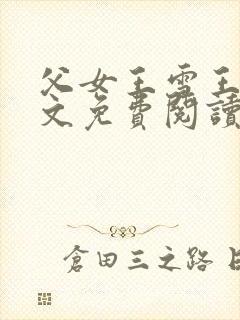 父女王雪王
文免費閱讀
倉田三之路